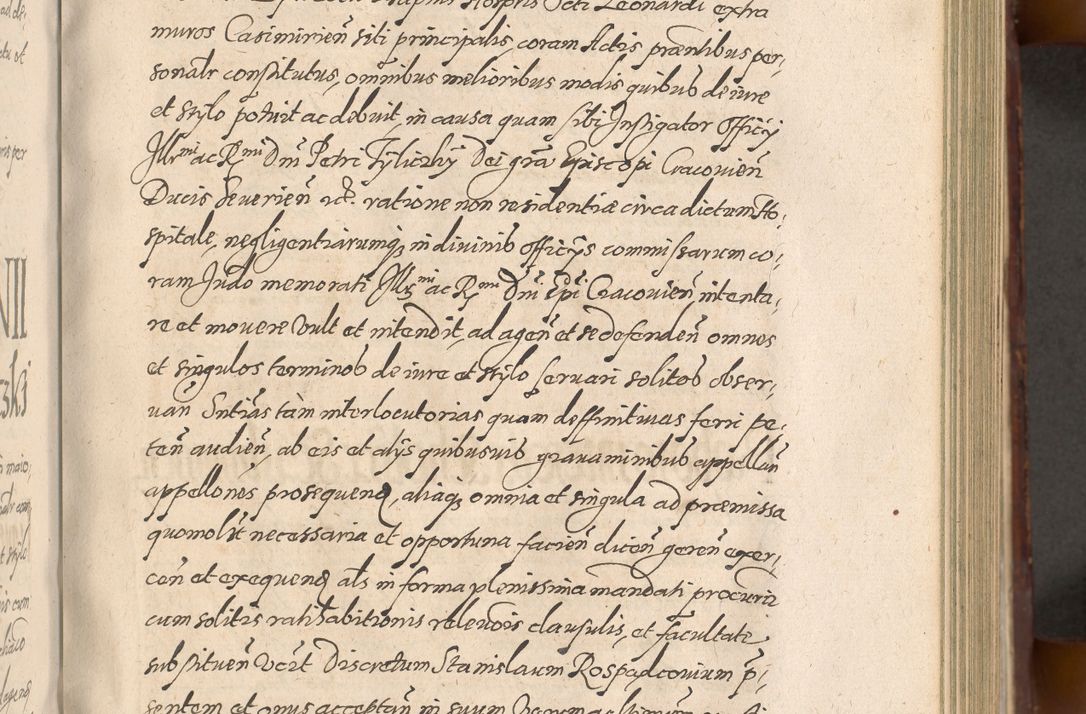 Hospitalis Scti Leonardi extra
muros Casimirien̄ siti principalis, coram Actis præntibus per¬
sonalr constitutus, omnibus melioribus modis quibus de iure
et stylo potuit ac debuit, in causa quam sibi Instigator Officij
Illrmi ac Rmi Dnī Petri Tyliczky Dei grā Episcopi Cracovien̄
Ducis Severien̄ etc. ratione non residentiæ circa dictum Ho¬
spitale, negligentiarumq; in divinis officijs commissarum co¬
ram Judo memorati Illrmi ac Rmi Dnī Epī Cracovien̄ intenta¬
re et movere vult et intendit, ad agen̄ et se defenden̄ omnes
et singulos terminos de iure et stylo servari solitos obser¬
van̄ Sntias tam interlocutorias quam deffinitivas ferri pe¬
ten̄ audien̄, ab eis et alijs quibusvis gravaminibus appellan̄
appellones prosequend, aliaq; omnia et singula ad præmissa
quomolibt necessaria et opportuna facien̄ dicen̄ geren̄ exer¬
cen̄ et exequend als in forma plenissima mandati procurii
cum solitis ratihabitionis relevōis clausulis, et facultate
substituen̄ Vcrt Discretum Stanislaum Rospadcovium p¬
sentem et onus acceptan̄ in suum